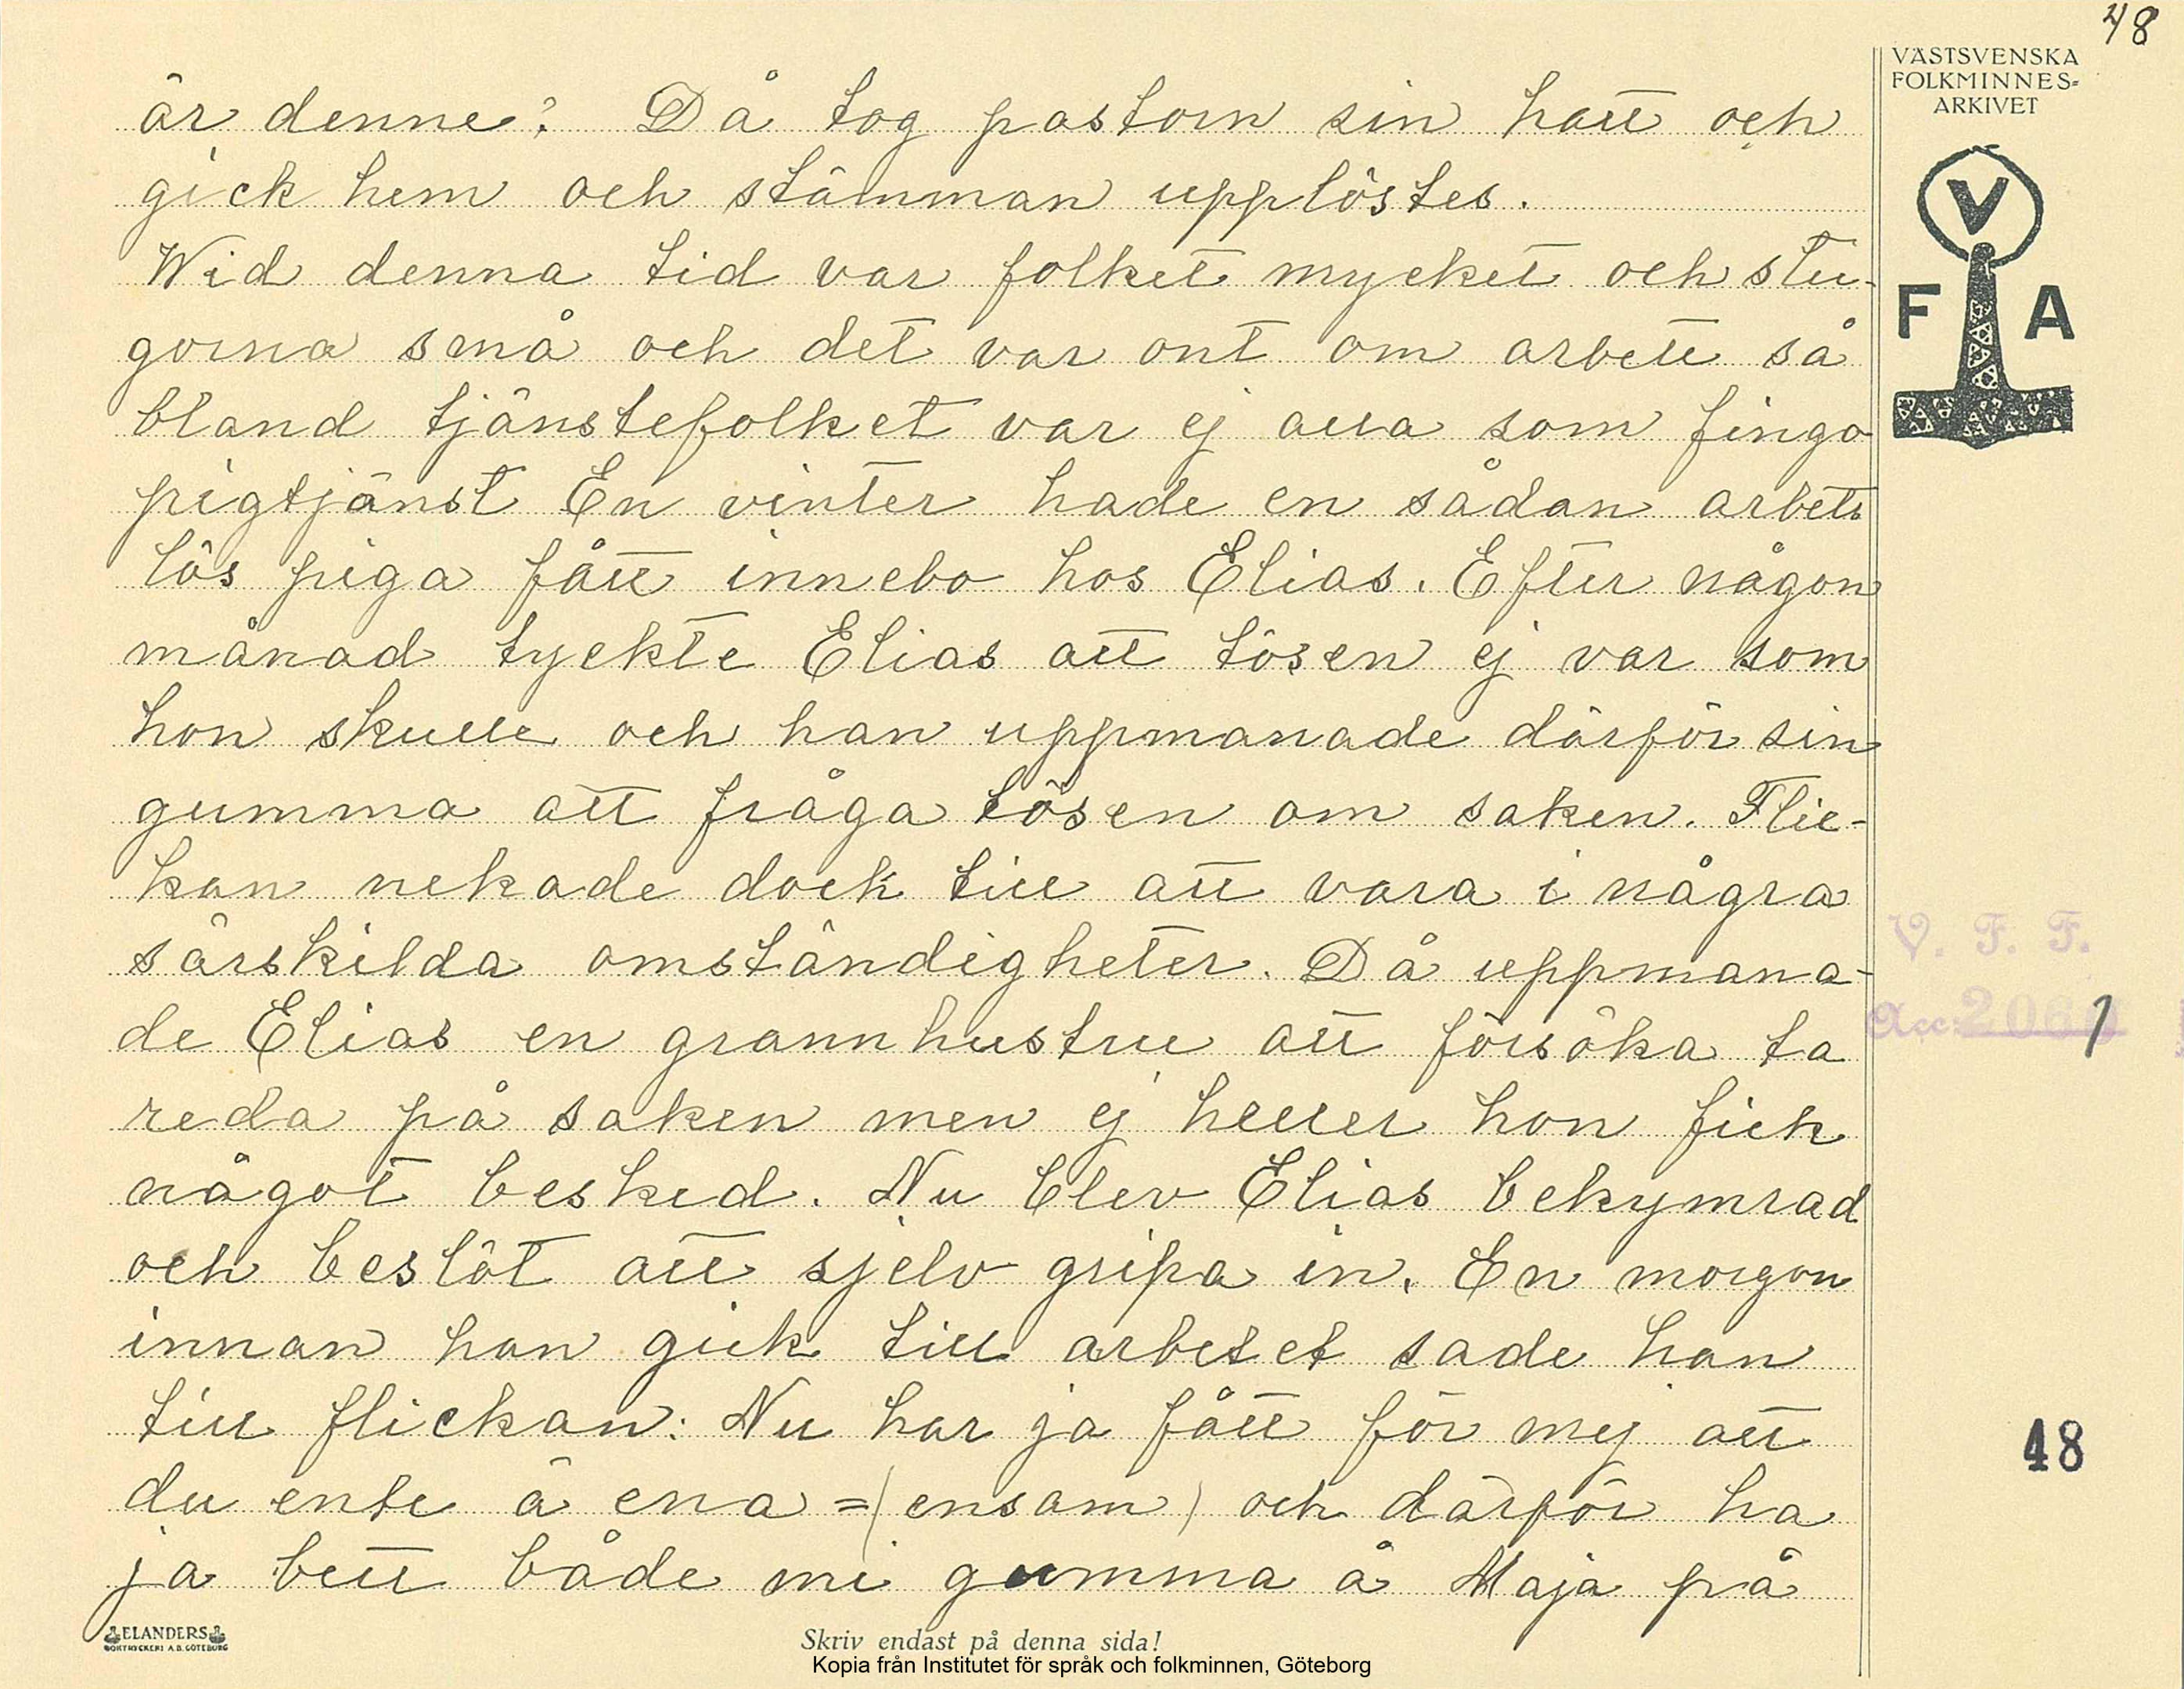 48
VÄSTSVENSKA
FOLKMINNES-
ARKIVET
V
F A
är denne? Då tog pastorn sin hatt och
gick hem och stämman upplöstes.
Wid denna tid var folket mycket och stu-
gorna små och det var ont om arbete så
bland tjänstefolket var ej alla som fingo
pigtjänst En vinter hade en sådan arbets
lös piga fått innebo hos Elias. Efter någon
månad tyckte Elias att tösen ej var som
hon skulle och han uppmanade därför sin
gumma att fråga tösen om saken. Flic-
kan nekade dock till att vara i några
särskilda omständigheter. Då uppmana-
de Elias en grannhustru att försöka ta
reda på saken men ej heller hon fick
något besked. Nu blev Elias bekymrad
och beslöt att sjelv gripa in. En morgon
innan han gick till arbetet sade han
till flickan: Nu har ja fått för mej att
du ente ä ena =(ensam) och därför ha
ja bett både mi gumma å Maja på
V. F. F.
Acc. 206 1
48
ELANDERS
BOKTRYCKERI A.B. GÖTEBORG
Skriv endast på denna sida!
Kopia från Institutet för språk och folkminnen, Göteborg